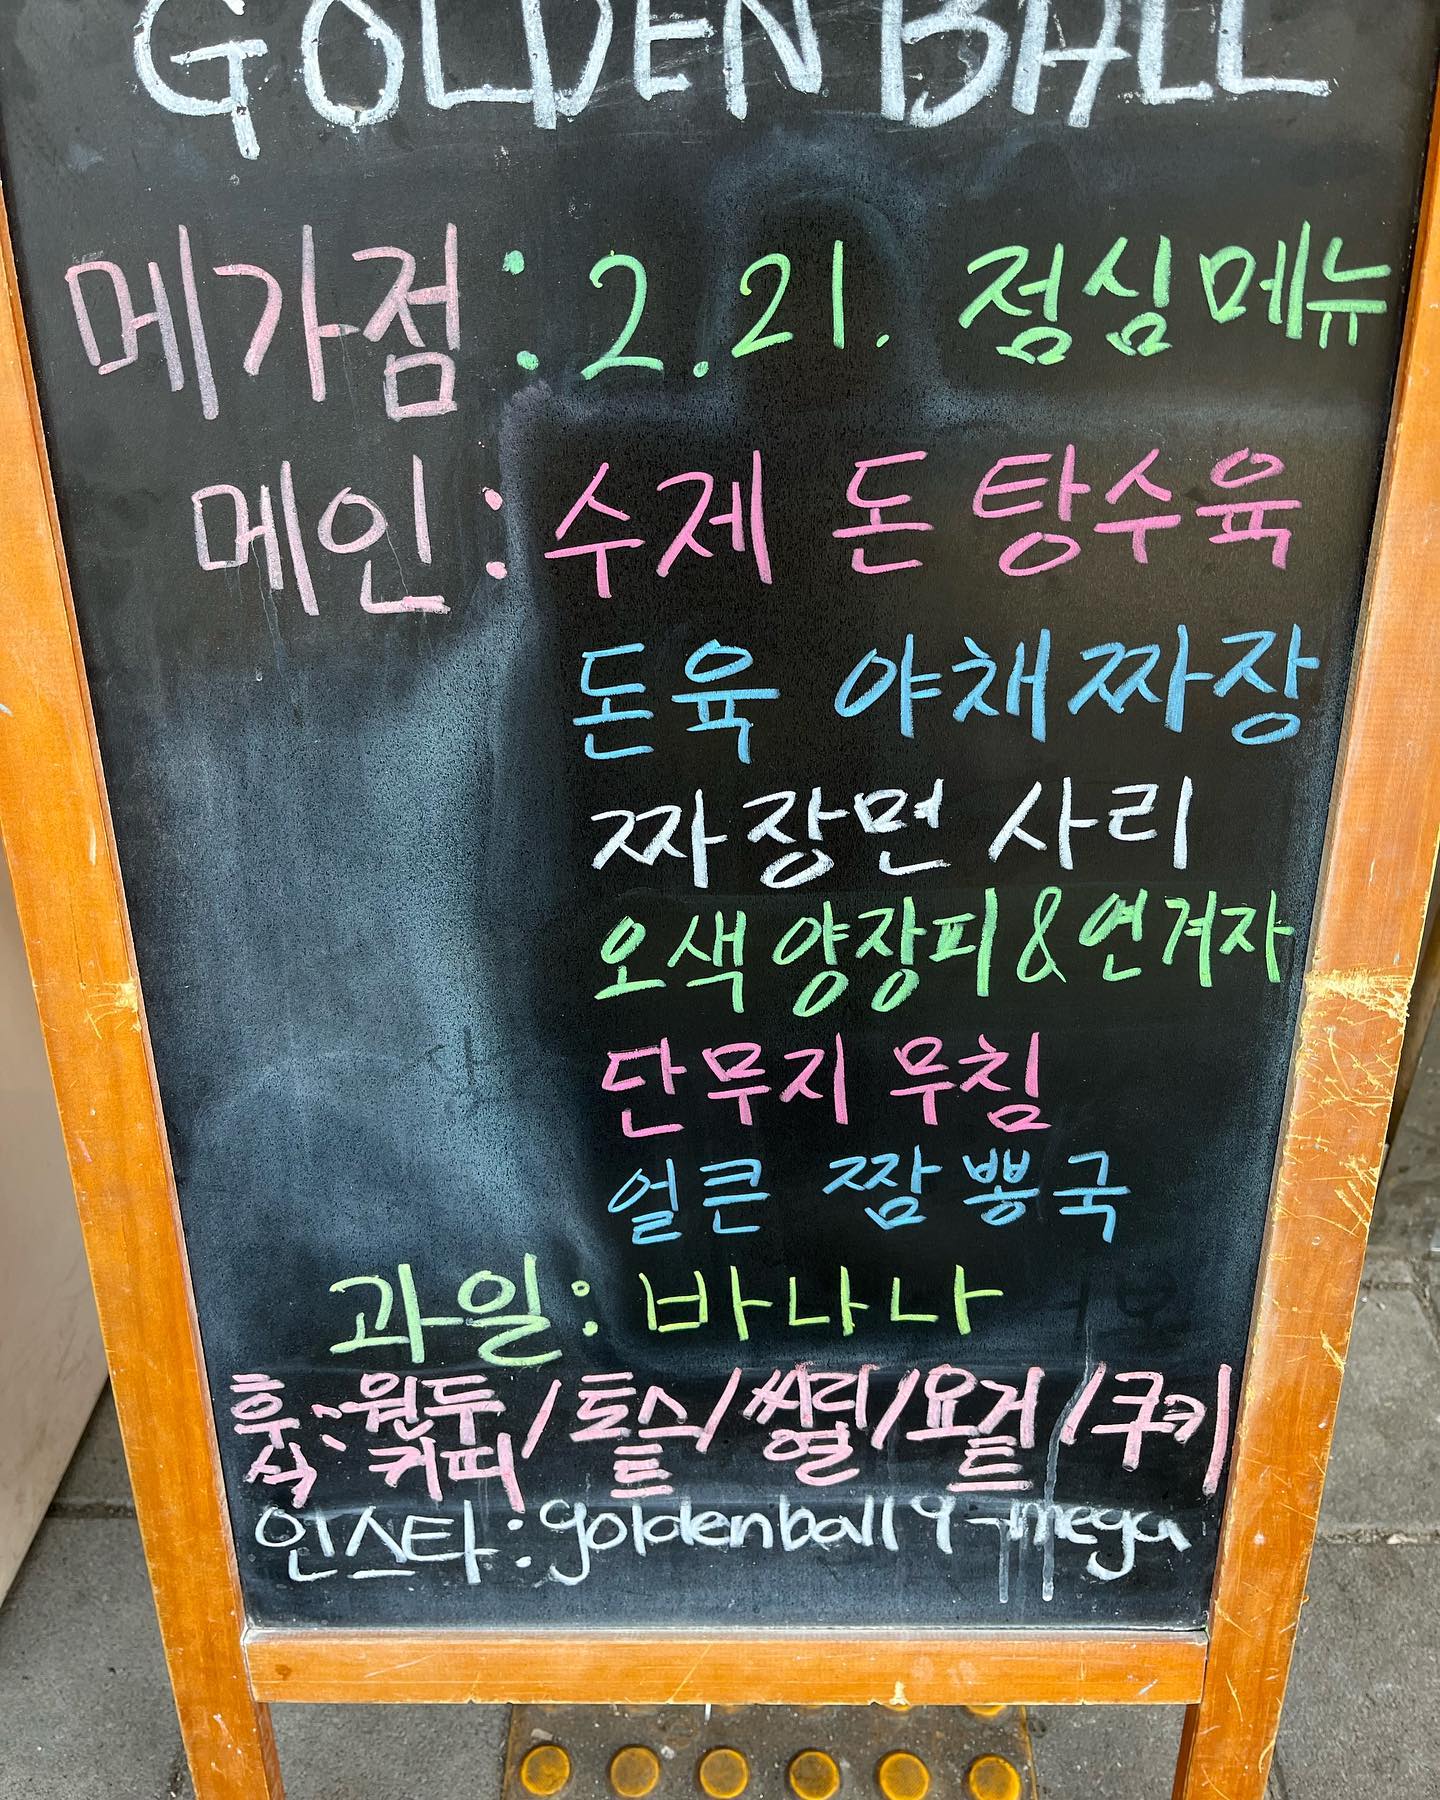 GOLDEN BALL
메가점: 2.21. 점심메뉴
메인: 수제 돈 탕수육
돈육 야채짜장
짜장면 사리
오색양장피&연겨자
단무지 무침
얼큰 짬뽕국
과일: 바나나
후식: 원두커피/토스트/씨리얼/요거트/쿠키
인스타: goldenball9_mega